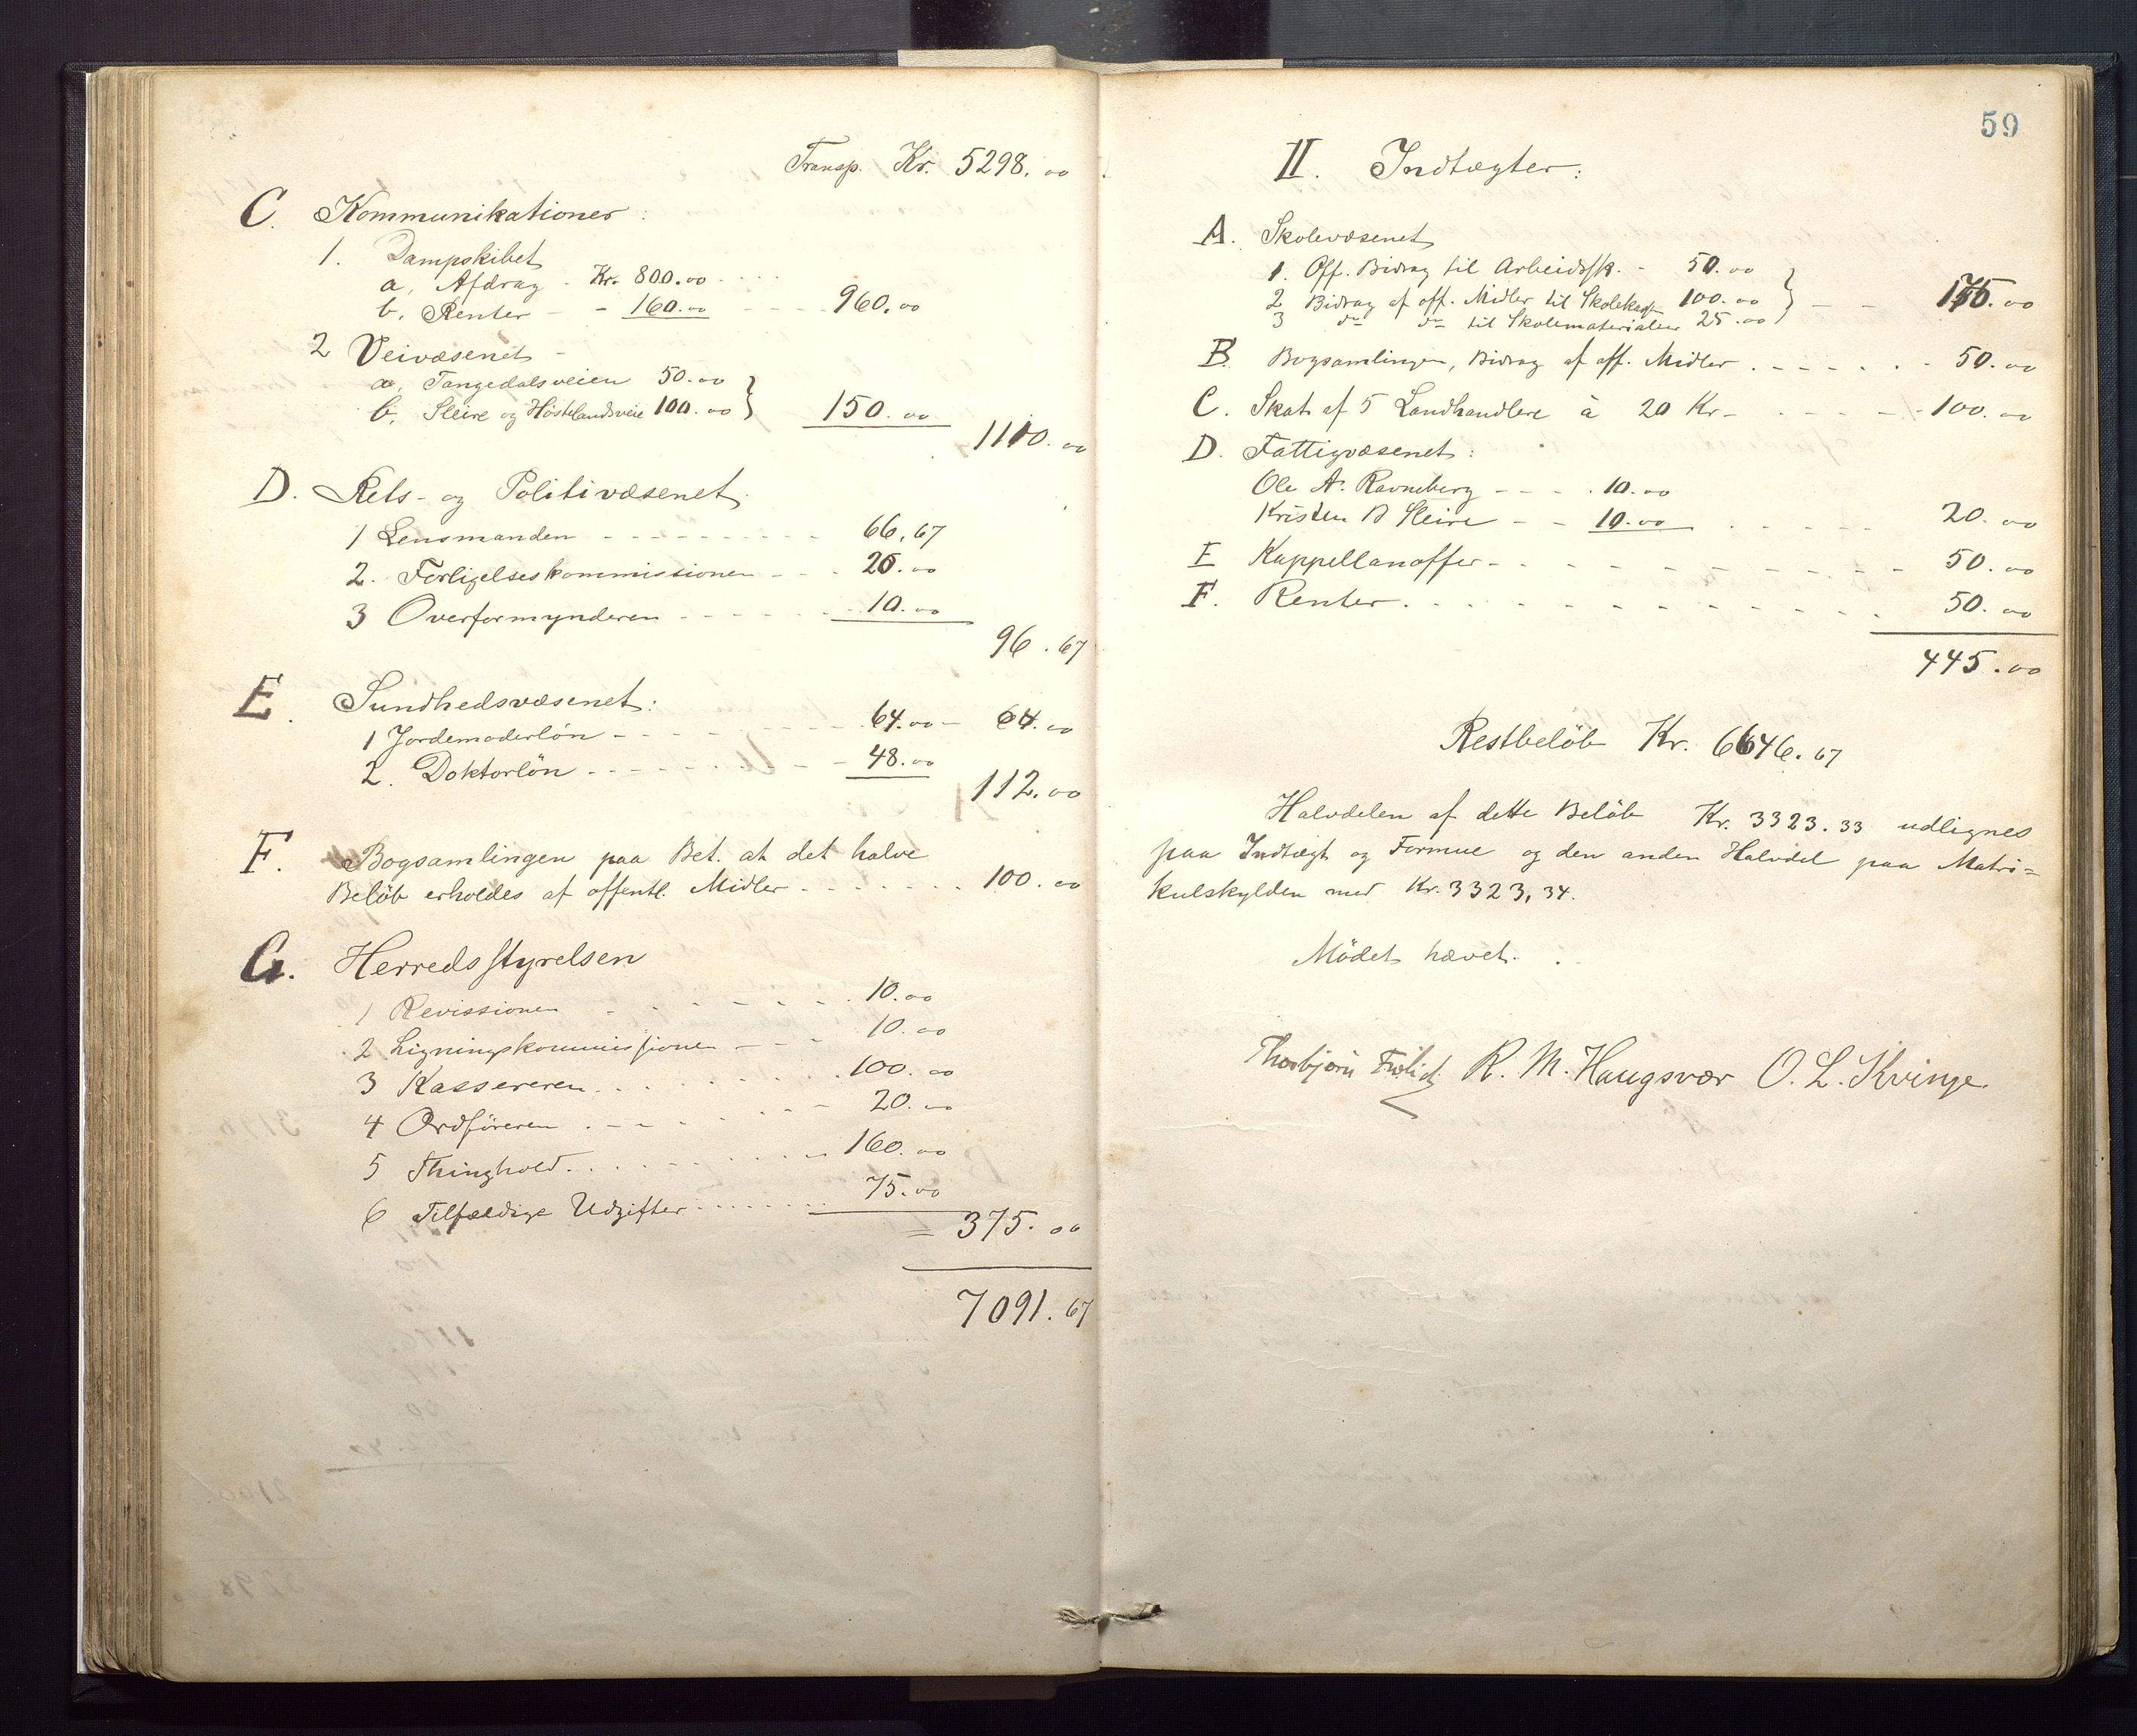 Transp. Kr. 5298.00
C. Kommunikationer:
1. Dampskibet
a, Afdrag - Kr. 800.00
b, Renter - - 160.00 - - - - 960.00
2 Veivæsenet -
a, Tangedalsveien 50.00
b, Sleire og Höstelandsveie 100.00 } 150.00
1110.00
D. Rets- og Politivæsenet.
1 Lensmanden - - - - - - - - - 66,67
2. Forligelseskommissionen - - - 20.00
3 Overformynderen - - - - - - 10.00
96.67
E. Sundhedsvæsenet:
1 Jordemoderlön - - - - - - - 64.00 - 64.00
2. Doktorlön - - - - - - - - 48.00
112.00
F. Bogsamlingen paa Bet. at det halve
Belöb erholdes af offentl. Midler - - - - - - - 100.00
G. Herredsstyrelsen
1 Revissionen - - - - - - 10.00
2 Ligningskommissionen - - - 10.00
3 Kassereren. . . . . . . . 100.00
4 Ordföreren . - - . . . - 20.00
5 Thinghold. . . . . . . . - 160.00
6 Tilfældige Udgifter . . . . . . . 75.00
= 375.00
7091.67
59
II. Indtægter:
A. Skolevæsenet
1. Off. Bidrag til Arbeidssk. - 50.00
2 Bidrag af off. Midler til Skolekassen 100.00 } - - 175.00
3 do do til Skolematerialier 25.00
B. Bogsamlingen, Bidrag af off. Midler . - - - . . - 50.00
C. Skat af 5 Landhandlere à 20 Kr - - - - - - 100.00
D. Fattigvæsenet:
Ole A. Ravneberg - - - . 10.00
Kristen B Sleire - - 10.00 . - - - - 20.00
E Kappellanoffer - . - . - - - - - - - 50.00
F. Renter . . . - . - - - - - - - . 50.00
445.00
Restbelöb Kr. 6646.67
Halvdelen af dette Belöb Kr. 3323.33 udlignes
paa Indtægt og Formue og den anden Halvdel paa Matri=
kulskylden med Kr. 3323,34.
Mödet hævet.
Thorbjörn Frölich R. M. Haugsvær O. L. Kvinge